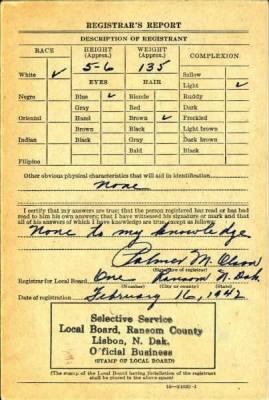 REGISTRAR'S REPORT
DESCRIPTION OF REGISTRANT
RACE HEIGHT (Approx.) WEIGHT (Approx.) COMPLEXION
5-6 135
White ✓ EYES HAIR Sallow
Light ✓
Negro Blue ✓ Blonde Ruddy
Gray Red Dark
Oriental Hazel Brown ✓ Freckled
Brown Black Light brown
Indian Black Gray Dark brown
Bald Black
Filipino
Other obvious physical characteristics that will aid in identification
None
I certify that my answers are true; that the person registered has read or has had
read to him his own answers; that I have witnessed his signature or mark and that
all of his answers of which I have knowledge are true, except as follows:
None to my knowledge
Palmer M. Olson
(Signature of registrar)
Registrar for Local Board One Ransom N. Dak.
(Number) (City or county) (State)
Date of registration February 16, 1942
Selective Service
Local Board, Ransom County
Lisbon, N. Dak.
Official Business
(STAMP OF LOCAL BOARD)
(The stamp of the Local Board having jurisdiction of the registrant
shall be placed in the above space)